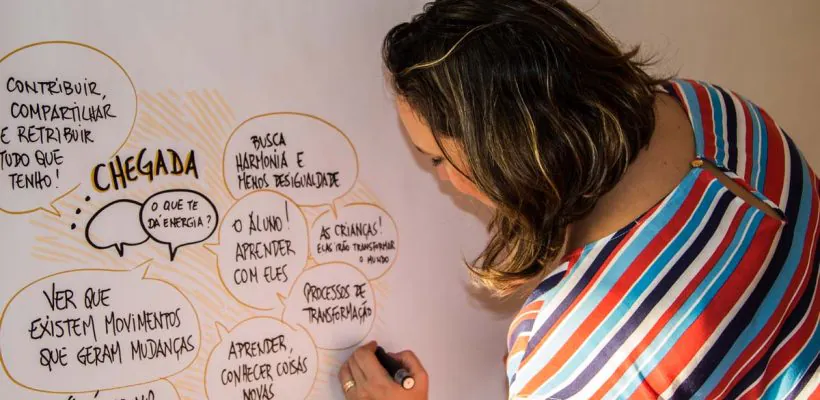 CONTRIBUIR,
COMPARTILHAR
E RETRIBUIR
TUDO QUE
TENHO!
CHEGADA
O QUE TE
DÁ ENERGIA?
BUSCA
HARMONIA E
MENOS DESIGUALDADE
O ÁLUNO!
APRENDER
COM ELES
AS CRIANÇAS!
ELAS IRÃO TRANSFORMAR
O MUNDO
PROCESSOS DE
TRANSFORMAÇÃO
VER QUE
EXISTEM MOVIMENTOS
QUE GERAM MUDANÇAS
APRENDER,
CONHECER COISAS
NOVAS